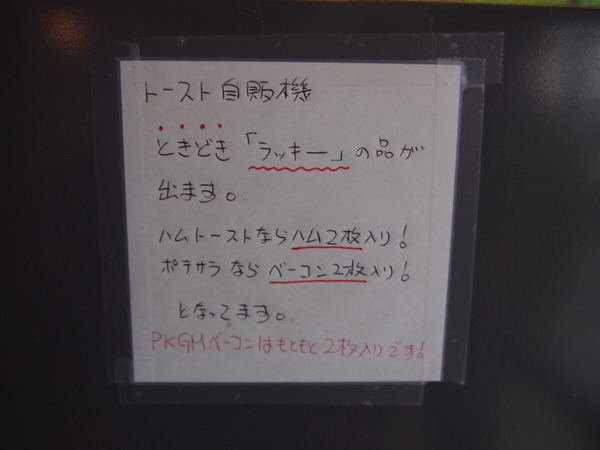 トースト自販機
ときどき「ラッキー」の品が
出ます。
ハムトーストならハム2枚入り!
ポテサラならベーコン2枚入り!
となってます。
PKGMベーコンはもともと2枚入りです!